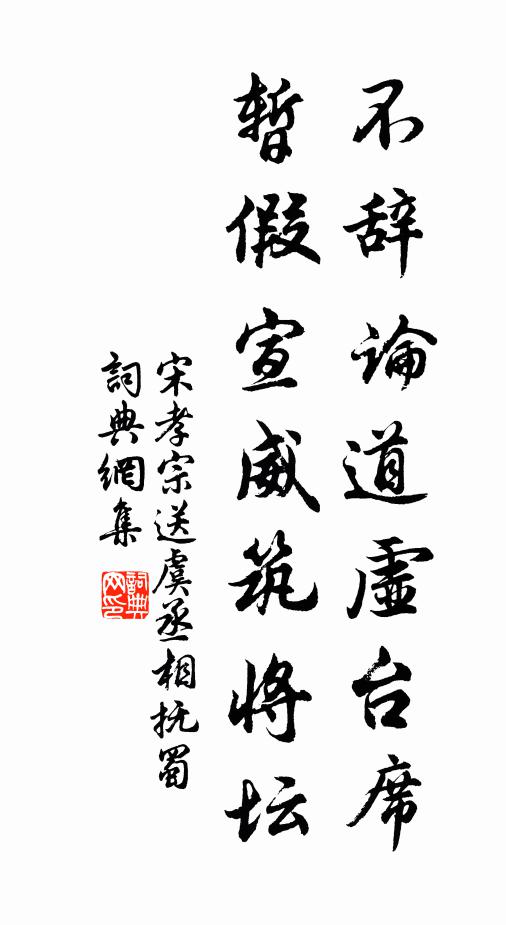 不辞論道虚台席
暂假宣威筑将坛
宋孝宗送虞丞相抚蜀
詞典網集
詞典网印